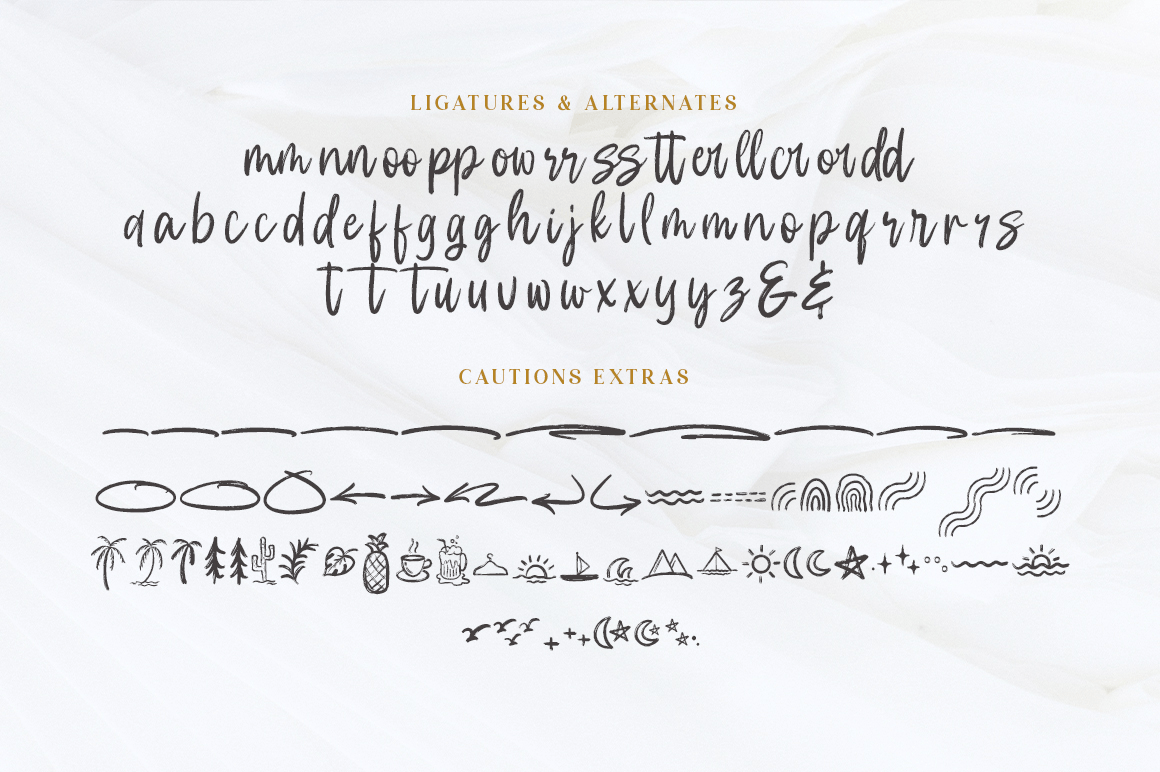 LIGATURES & ALTERNATES
mm nn oo pp ow rr ss tt er ll cr or dd
a a b c c d d e f f g g g h i j k l l m m n o p q r r r r s
t t t u u v w w x x y y z & &
CAUTIONS EXTRAS